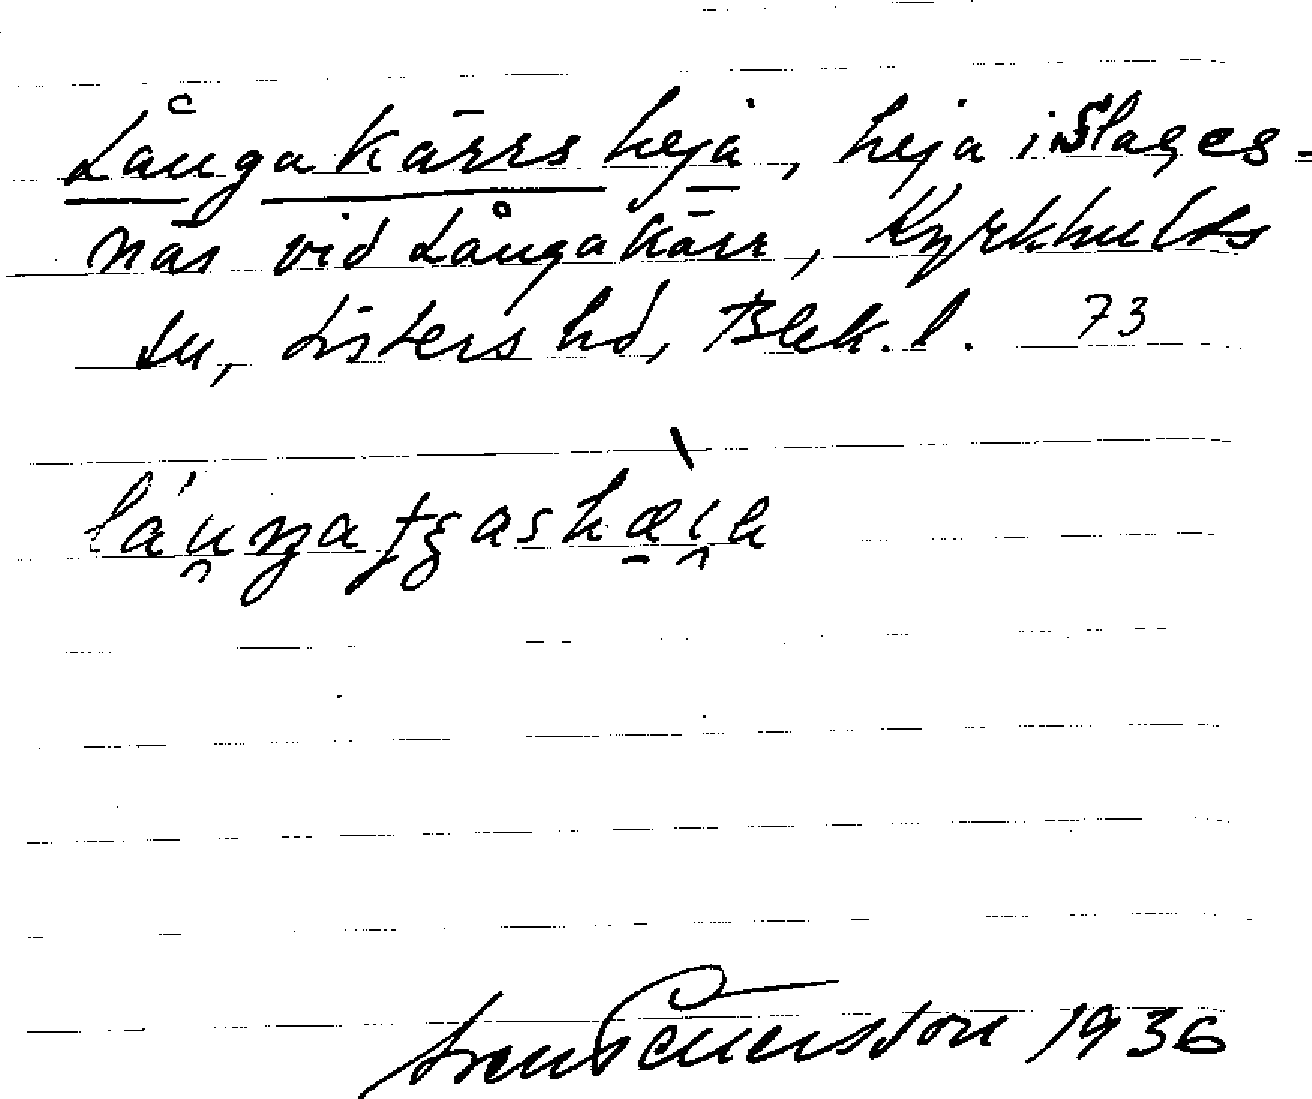 Långakärrs heja, heja i Slages-
näs vid Långakärr, Kyrkhults
sn, Listers hd, Blek. l. 73
Sven Pettersson 1936